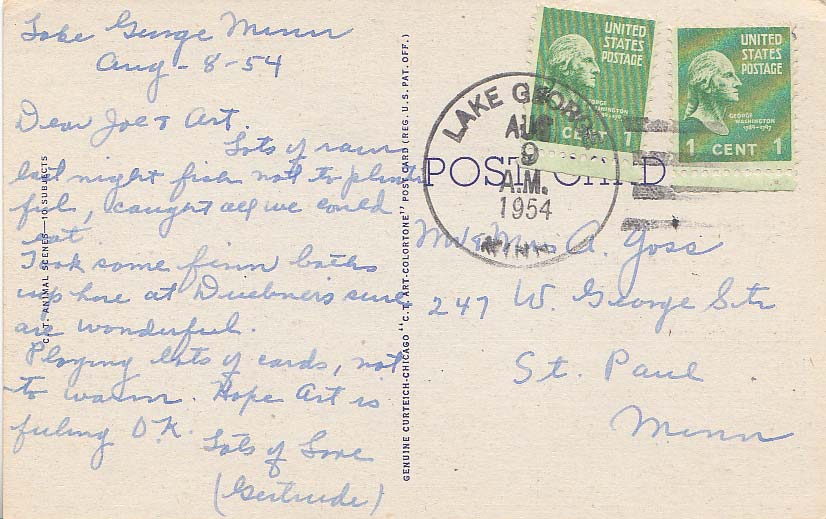 Lake George Minn
Aug - 8 - 54
Dear Joe & Art.
Lots of rain
last night fish not to plenti
ful, caught all we could
eat.
Took some finn baths
up here at Duebner's sure
are wonderful.
Playing lots of cards, not
to warm. Hope Art is
feeling O.K.
Lots of Love
(Gertrude)
C.T. ANIMAL SCENES—10 SUBJECTS
GENUINE CURTEICH-CHICAGO "C.T. ART-COLORTONE" POST CARD (REG. U.S. PAT. OFF.)
POST CARD
UNITED
STATES
POSTAGE
GEORGE
WASHINGTON
CENT 1
UNITED
STATES
POSTAGE
GEORGE
WASHINGTON
1789-1797
1 CENT 1
LAKE GEORGE
AUG
9
A.M.
1954
MINN
Mr & Mrs A. Joss
247 W. George Str
St. Paul
Minn